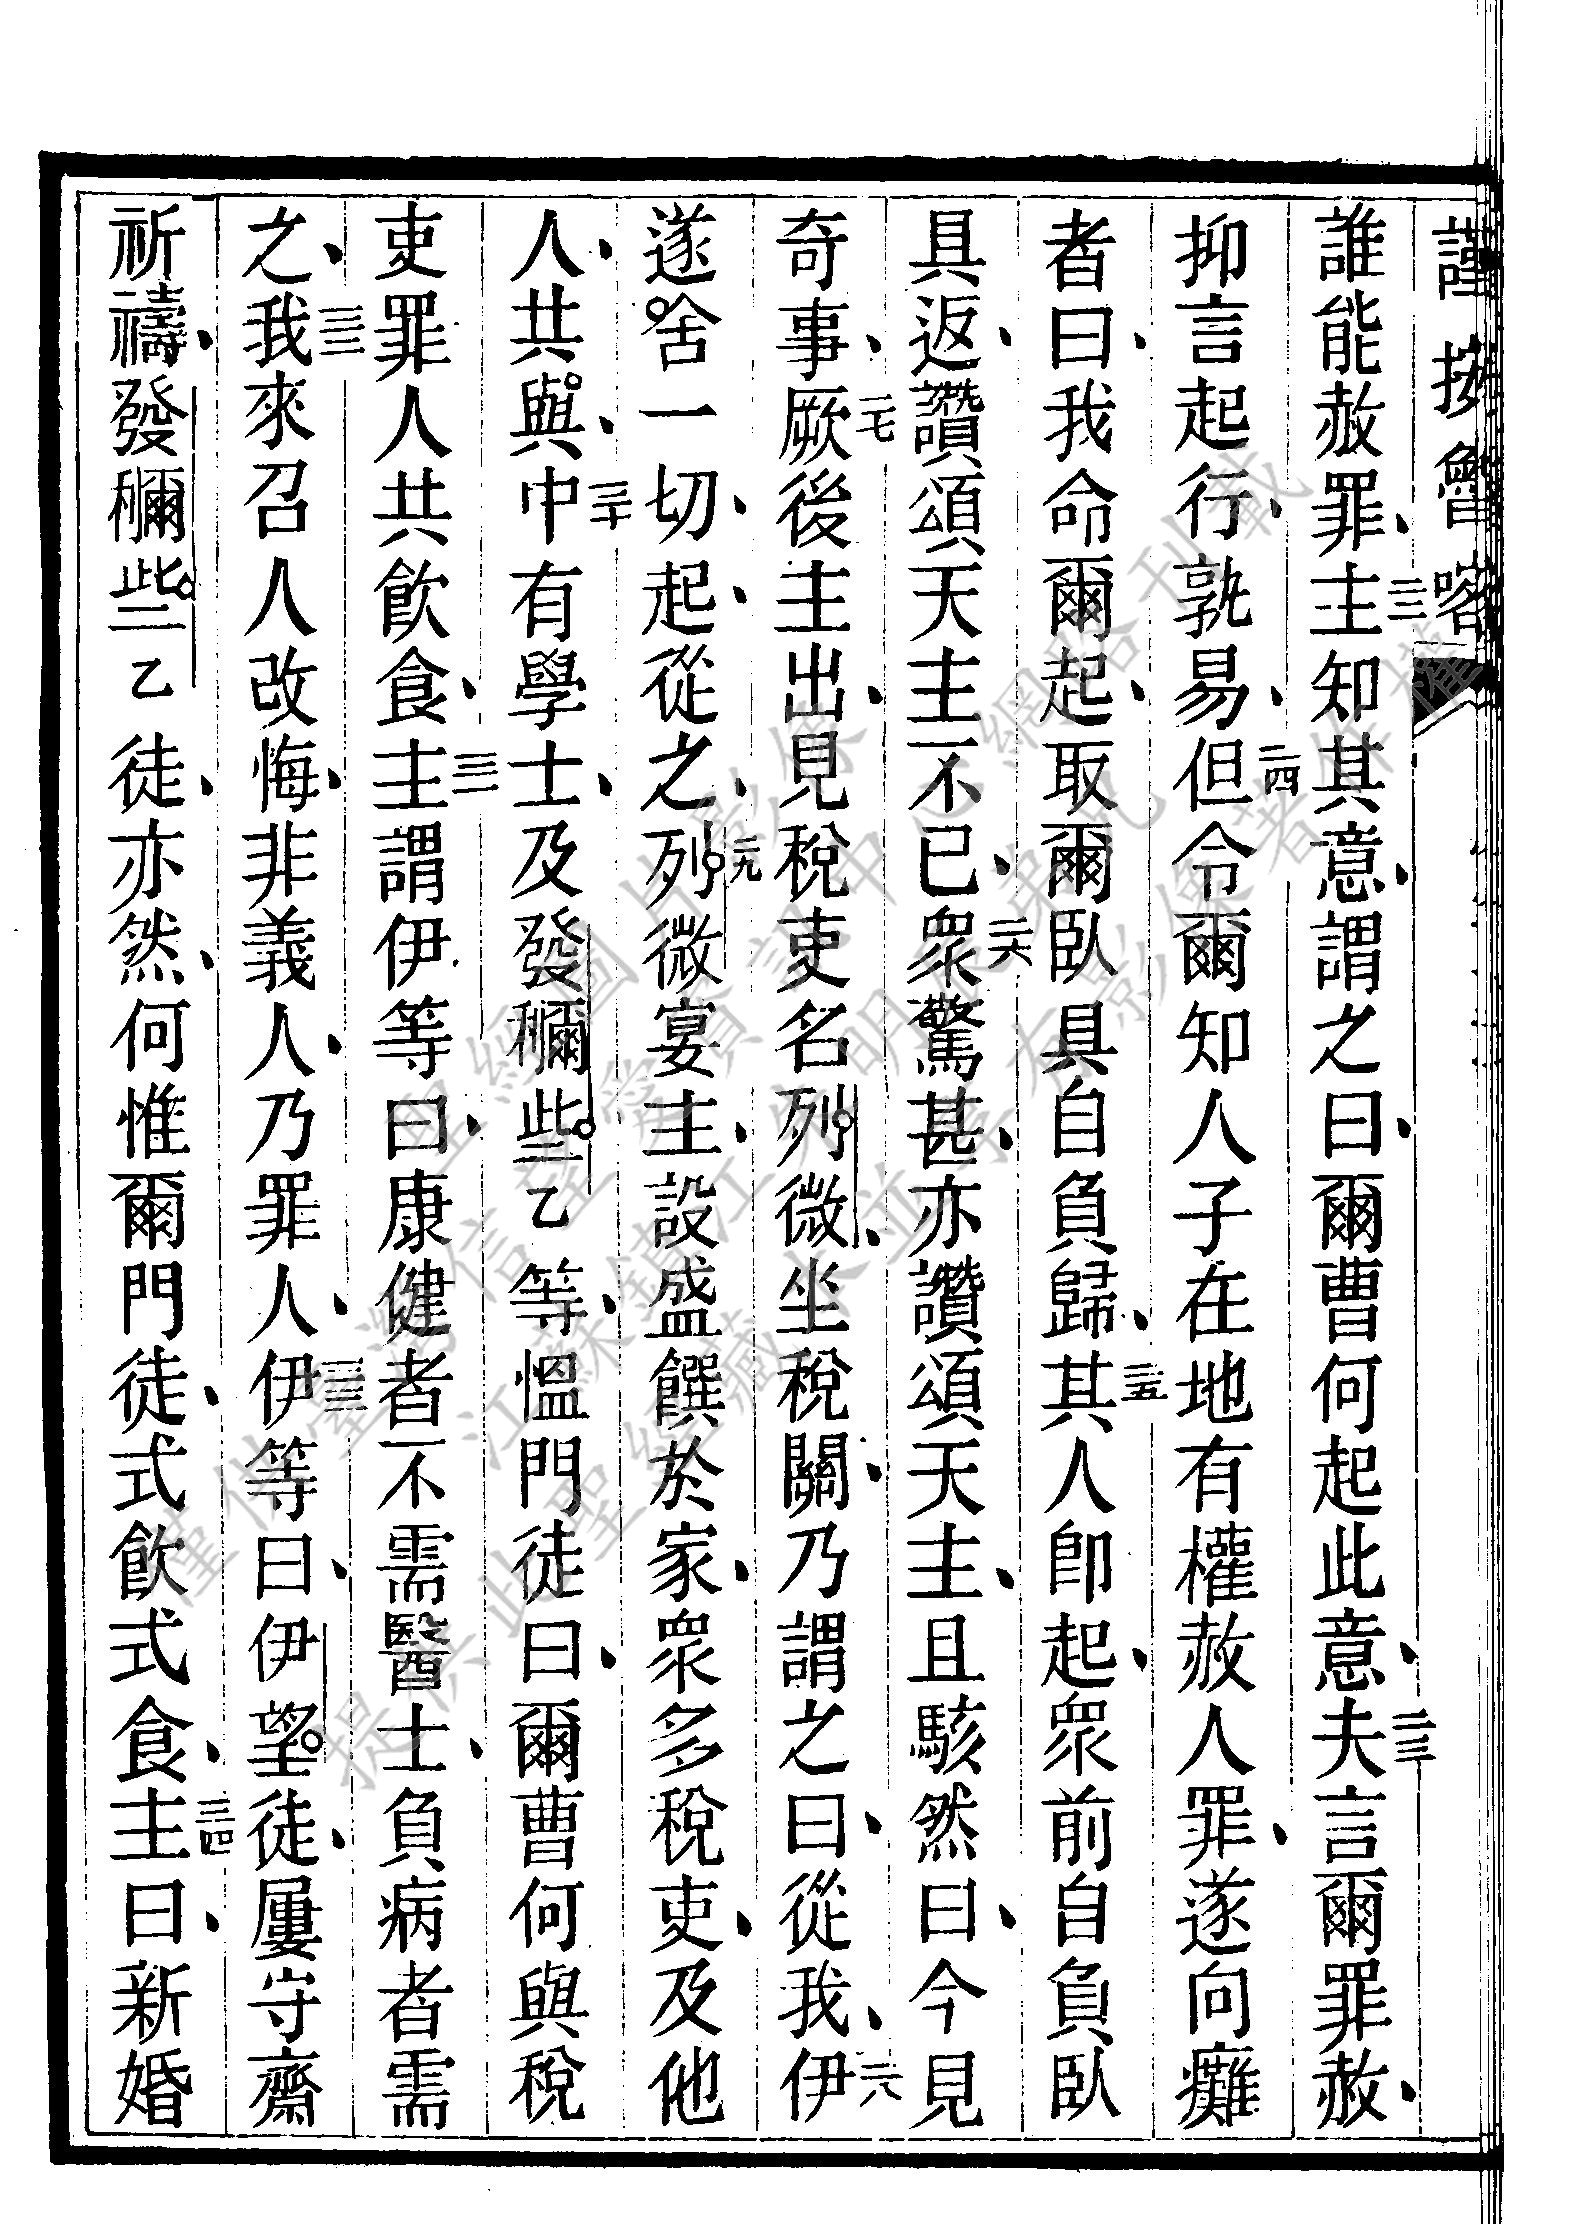 謹按魯喀
誰能赦罪、二二主知其意、謂之曰、爾曹何起此意、二三夫言爾罪赦、
抑言起行、孰易、二四但令爾知人子在地有權赦人罪、遂向癱
者曰、我命爾起、取爾臥具自負歸、二五其人卽起、眾前自負臥
具返、讚頌天主不已、二六眾驚甚、亦讚頌天主、且駭然曰、今見
奇事、二七厥後主出、見稅吏名列微、坐稅關、乃謂之曰、從我、二八伊
遂舍一切、起、從之、二九列微宴主、設盛饌於家、眾多稅吏、及他
人、共與、三十中有學士、及發穪些乙等、慍門徒曰、爾曹何與稅
吏罪人共飲食、三一主謂伊等曰、康健者不需醫士、負病者需
之、三二我來召人改悔、非義人、乃罪人、三三伊等曰、伊望徒、屢守齋
祈禱、發穪些乙徒、亦然、何惟爾門徒、式飲式食、三四主曰、新婚